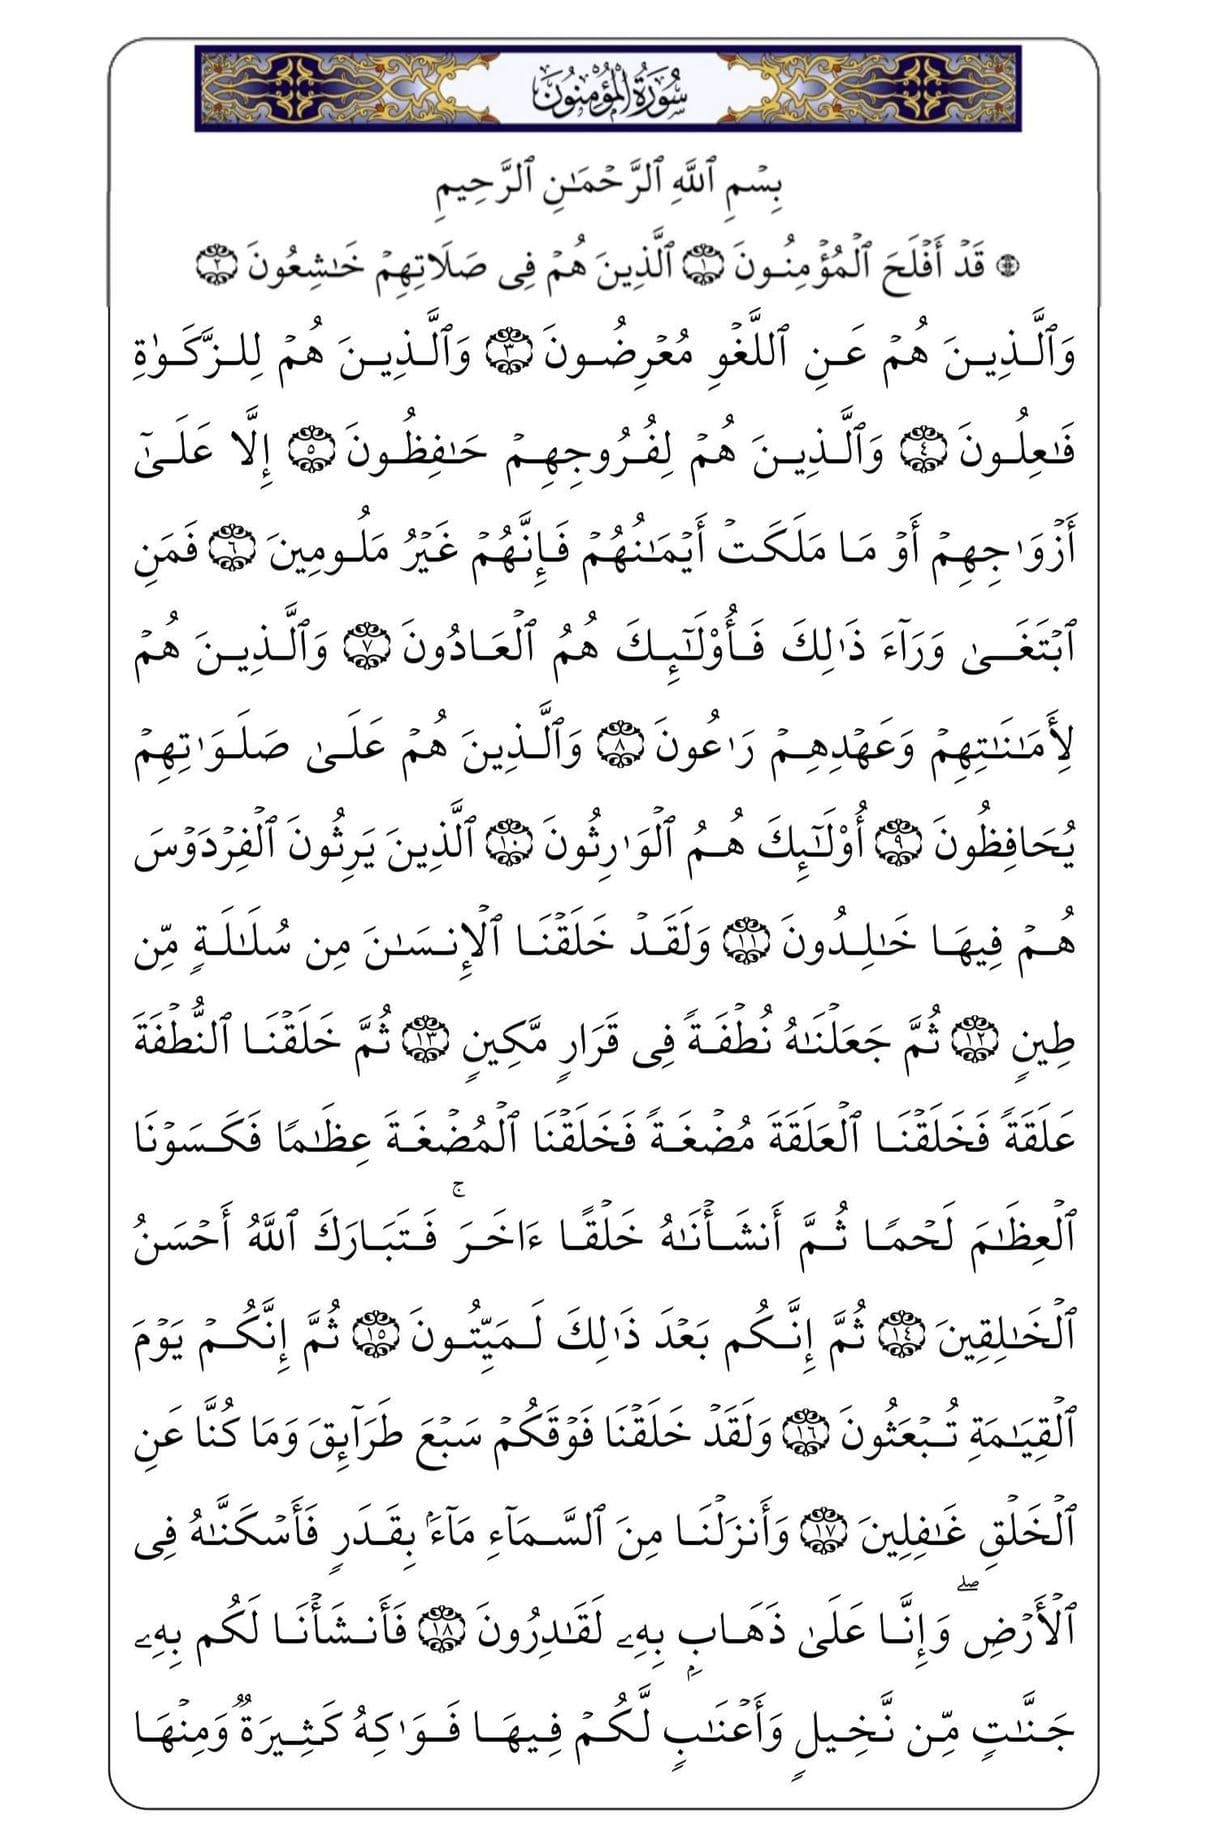 سُورَةُ الْمُؤْمِنُونَ
بِسۡمِ ٱللَّهِ ٱلرَّحۡمَٰنِ ٱلرَّحِيمِ
۞ قَدۡ أَفۡلَحَ ٱلۡمُؤۡمِنُونَ ١ ٱلَّذِينَ هُمۡ فِي صَلَاتِهِمۡ خَٰشِعُونَ ٢
وَٱلَّذِينَ هُمۡ عَنِ ٱللَّغۡوِ مُعۡرِضُونَ ٣ وَٱلَّذِينَ هُمۡ لِلزَّكَوٰةِ
فَٰعِلُونَ ٤ وَٱلَّذِينَ هُمۡ لِفُرُوجِهِمۡ حَٰفِظُونَ ٥ إِلَّا عَلَىٰٓ
أَزۡوَٰجِهِمۡ أَوۡ مَا مَلَكَتۡ أَيۡمَٰنُهُمۡ فَإِنَّهُمۡ غَيۡرُ مَلُومِينَ ٦ فَمَنِ
ٱبۡتَغَىٰ وَرَآءَ ذَٰلِكَ فَأُوْلَٰٓئِكَ هُمُ ٱلۡعَادُونَ ٧ وَٱلَّذِينَ هُمۡ
لِأَمَٰنَٰتِهِمۡ وَعَهۡدِهِمۡ رَٰعُونَ ٨ وَٱلَّذِينَ هُمۡ عَلَىٰ صَلَوَٰتِهِمۡ
يُحَافِظُونَ ٩ أُوْلَٰٓئِكَ هُمُ ٱلۡوَٰرِثُونَ ١٠ ٱلَّذِينَ يَرِثُونَ ٱلۡفِرۡدَوۡسَ
هُمۡ فِيهَا خَٰلِدُونَ ١١ وَلَقَدۡ خَلَقۡنَا ٱلۡإِنسَٰنَ مِن سُلَٰلَةٖ مِّن
طِينٖ ١٢ ثُمَّ جَعَلۡنَٰهُ نُطۡفَةٗ فِي قَرَارٖ مَّكِينٖ ١٣ ثُمَّ خَلَقۡنَا ٱلنُّطۡفَةَ
عَلَقَةٗ فَخَلَقۡنَا ٱلۡعَلَقَةَ مُضۡغَةٗ فَخَلَقۡنَا ٱلۡمُضۡغَةَ عِظَٰمٗا فَكَسَوۡنَا
ٱلۡعِظَٰمَ لَحۡمٗا ثُمَّ أَنشَأۡنَٰهُ خَلۡقًا ءَاخَرَۚ فَتَبَارَكَ ٱللَّهُ أَحۡسَنُ
ٱلۡخَٰلِقِينَ ١٤ ثُمَّ إِنَّكُم بَعۡدَ ذَٰلِكَ لَمَيِّتُونَ ١٥ ثُمَّ إِنَّكُمۡ يَوۡمَ
ٱلۡقِيَٰمَةِ تُبۡعَثُونَ ١٦ وَلَقَدۡ خَلَقۡنَا فَوۡقَكُمۡ سَبۡعَ طَرَآئِقَ وَمَا كُنَّا عَنِ
ٱلۡخَلۡقِ غَٰفِلِينَ ١٧ وَأَنزَلۡنَا مِنَ ٱلسَّمَآءِ مَآءَۢ بِقَدَرٖ فَأَسۡكَنَّٰهُ فِي
ٱلۡأَرۡضِۖ وَإِنَّا عَلَىٰ ذَهَابِۭ بِهِۦ لَقَٰدِرُونَ ١٨ فَأَنشَأۡنَا لَكُم بِهِۦ
جَنَّٰتٖ مِّن نَّخِيلٖ وَأَعۡنَٰبٖ لَّكُمۡ فِيهَا فَوَٰكِهُ كَثِيرَةٞ وَمِنۡهَا